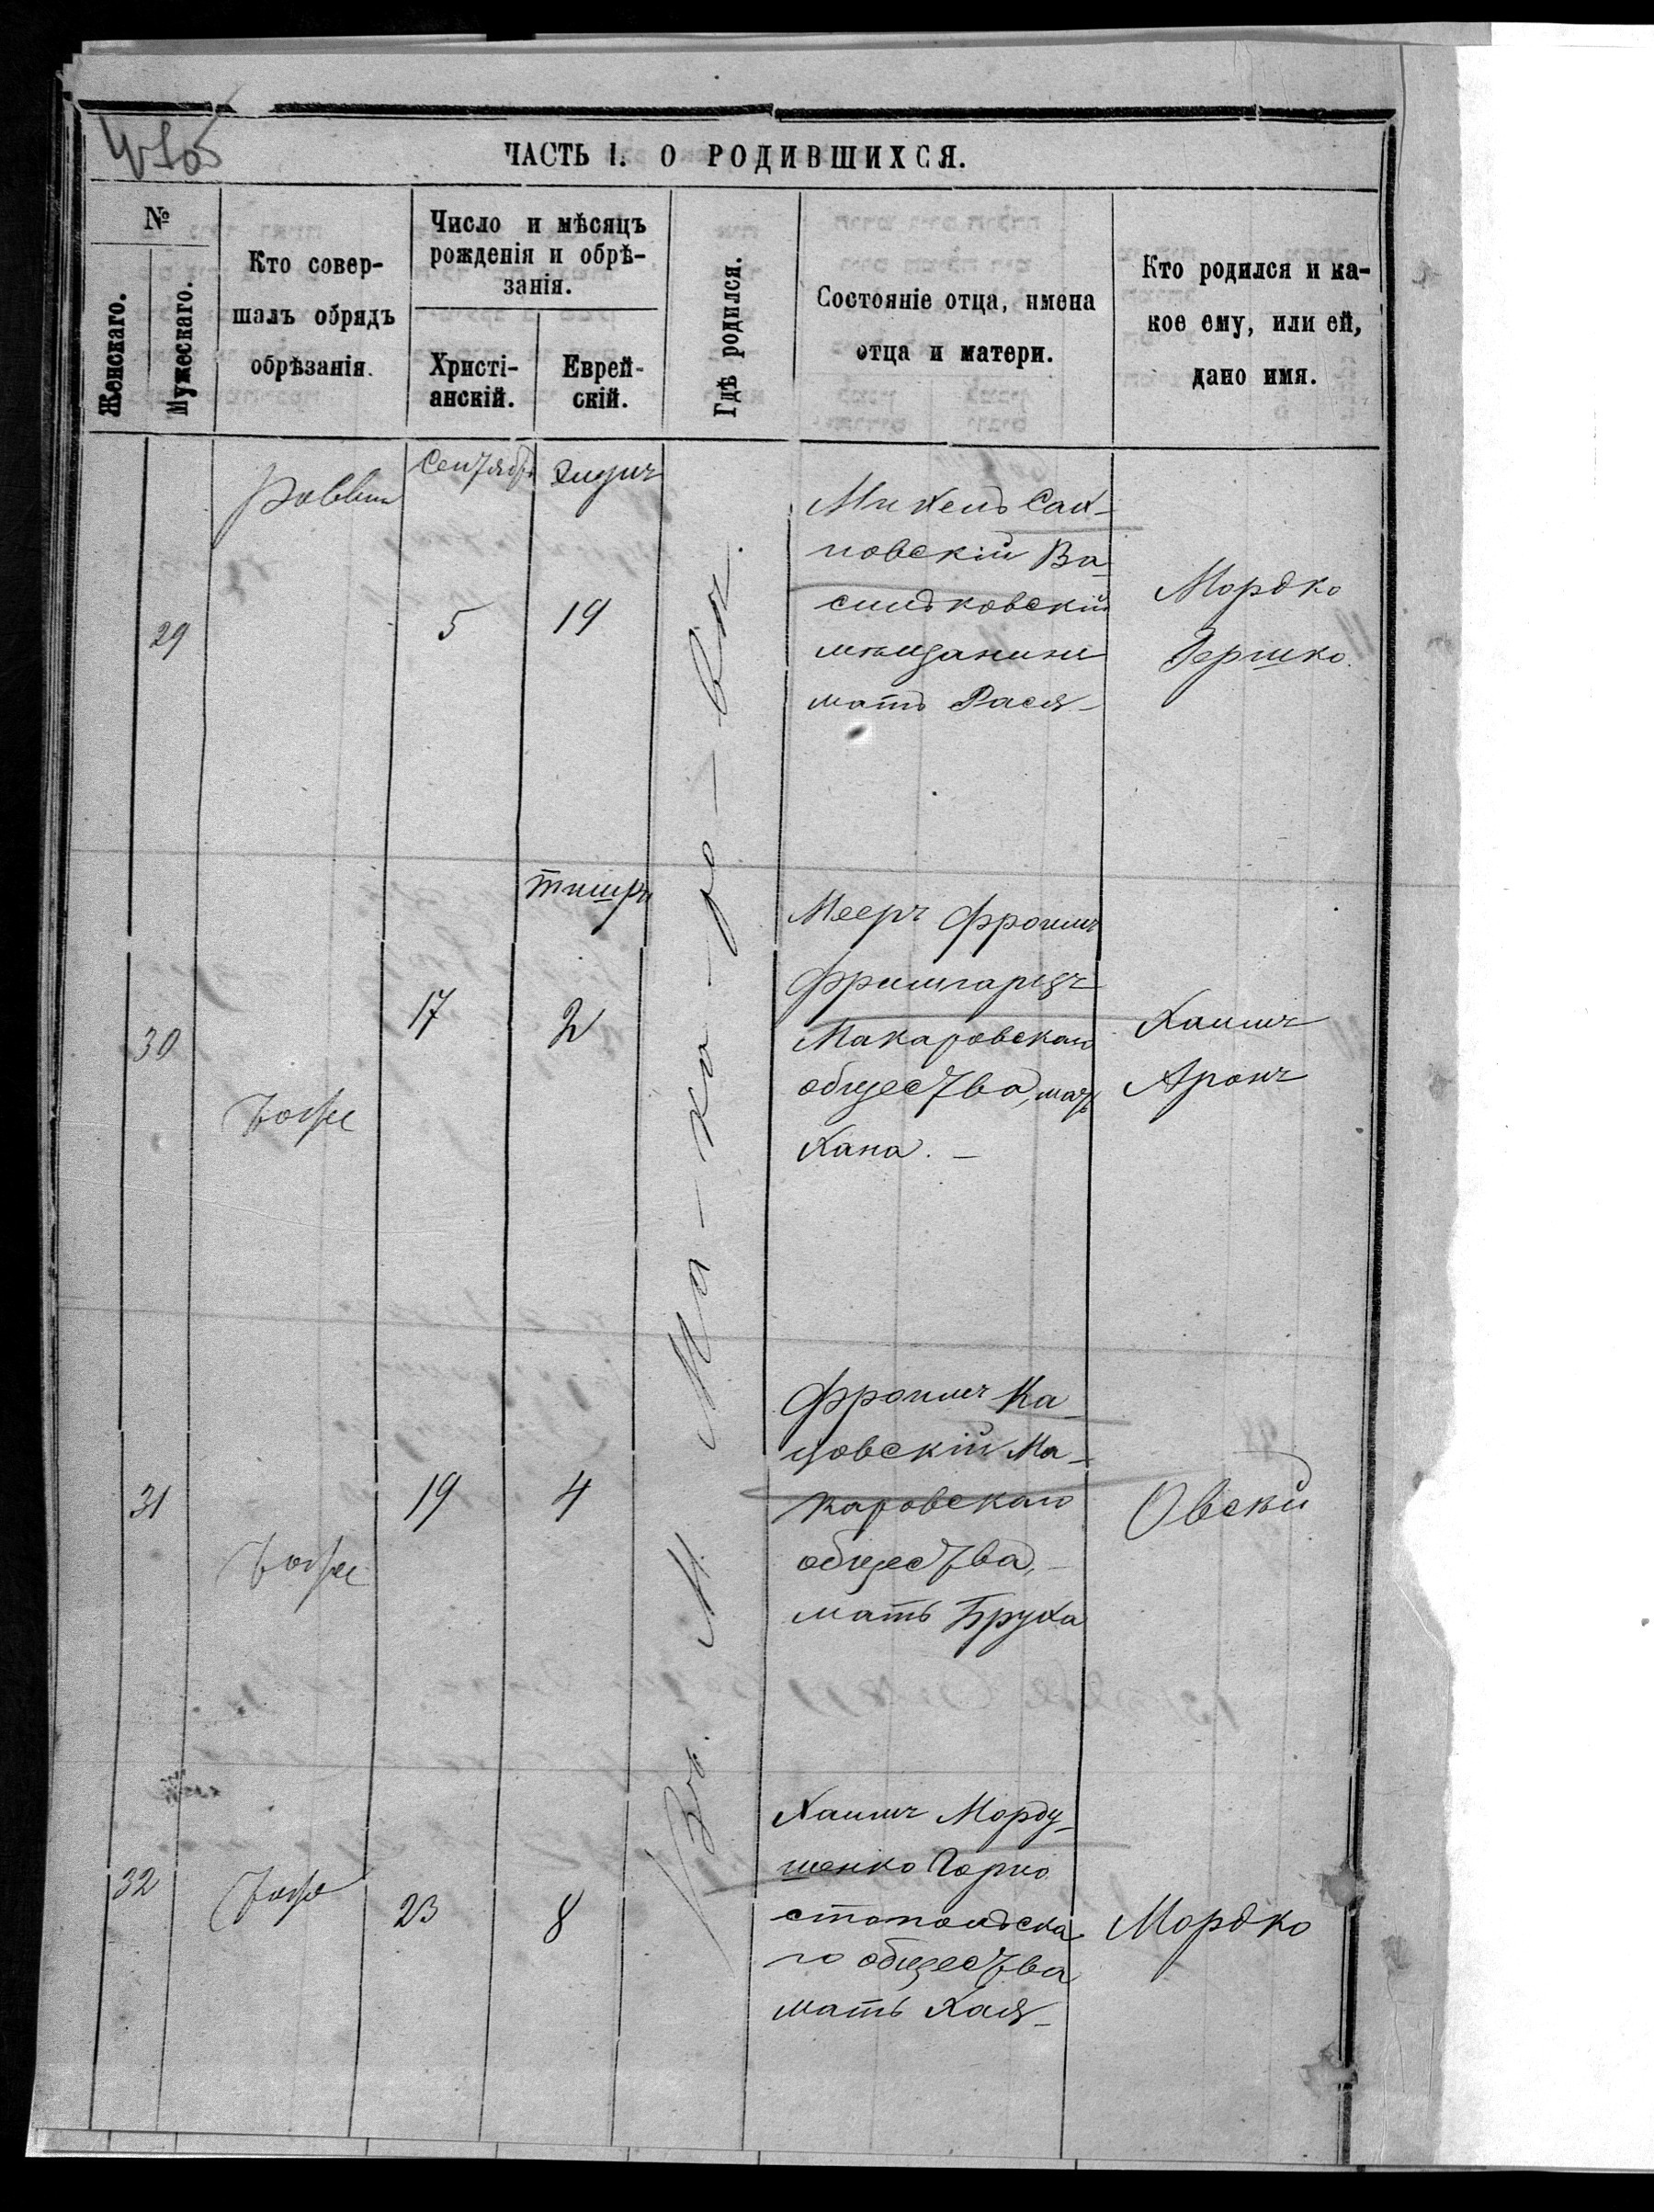 ЧАСТЬ I. О РОДИВШИХСЯ.
№
Женскаго.
Мужескаго.
Кто совер-
шалъ обрядъ
обрѣзанія.
Число и мѣсяцъ
рожденія и обрѣ-
занія.
Христі-
анскій.
Еврей-
скій.
Гдѣ родился.
Состояніе отца, имена
отца и матери.
Кто родился и ка-
кое ему, или ей,
дано имя.
29
Раввин
Сентябрь
5
Элулъ
19
Въ М. Ма-ка-ро-вѣ.
Михель Сах-
новскій Ва-
сильковскій
мѣщанинъ
мать Рася
Мордко
Гершко.
30
Тоже
17
Тишри
2
Мееръ Фроимъ
Макаровскаго
общества, мать
Хана. –
Хаимъ
Аронъ
31
Тоже
19
4
Фроимъ Ка-
цовскій Ма-
каровскаго
общества, –
мать Бруха
Овсій
32
Тоже
23
8
Хаимъ Морду-
шенко Горно
стопольска
го общества
мать Хая –
Мордко